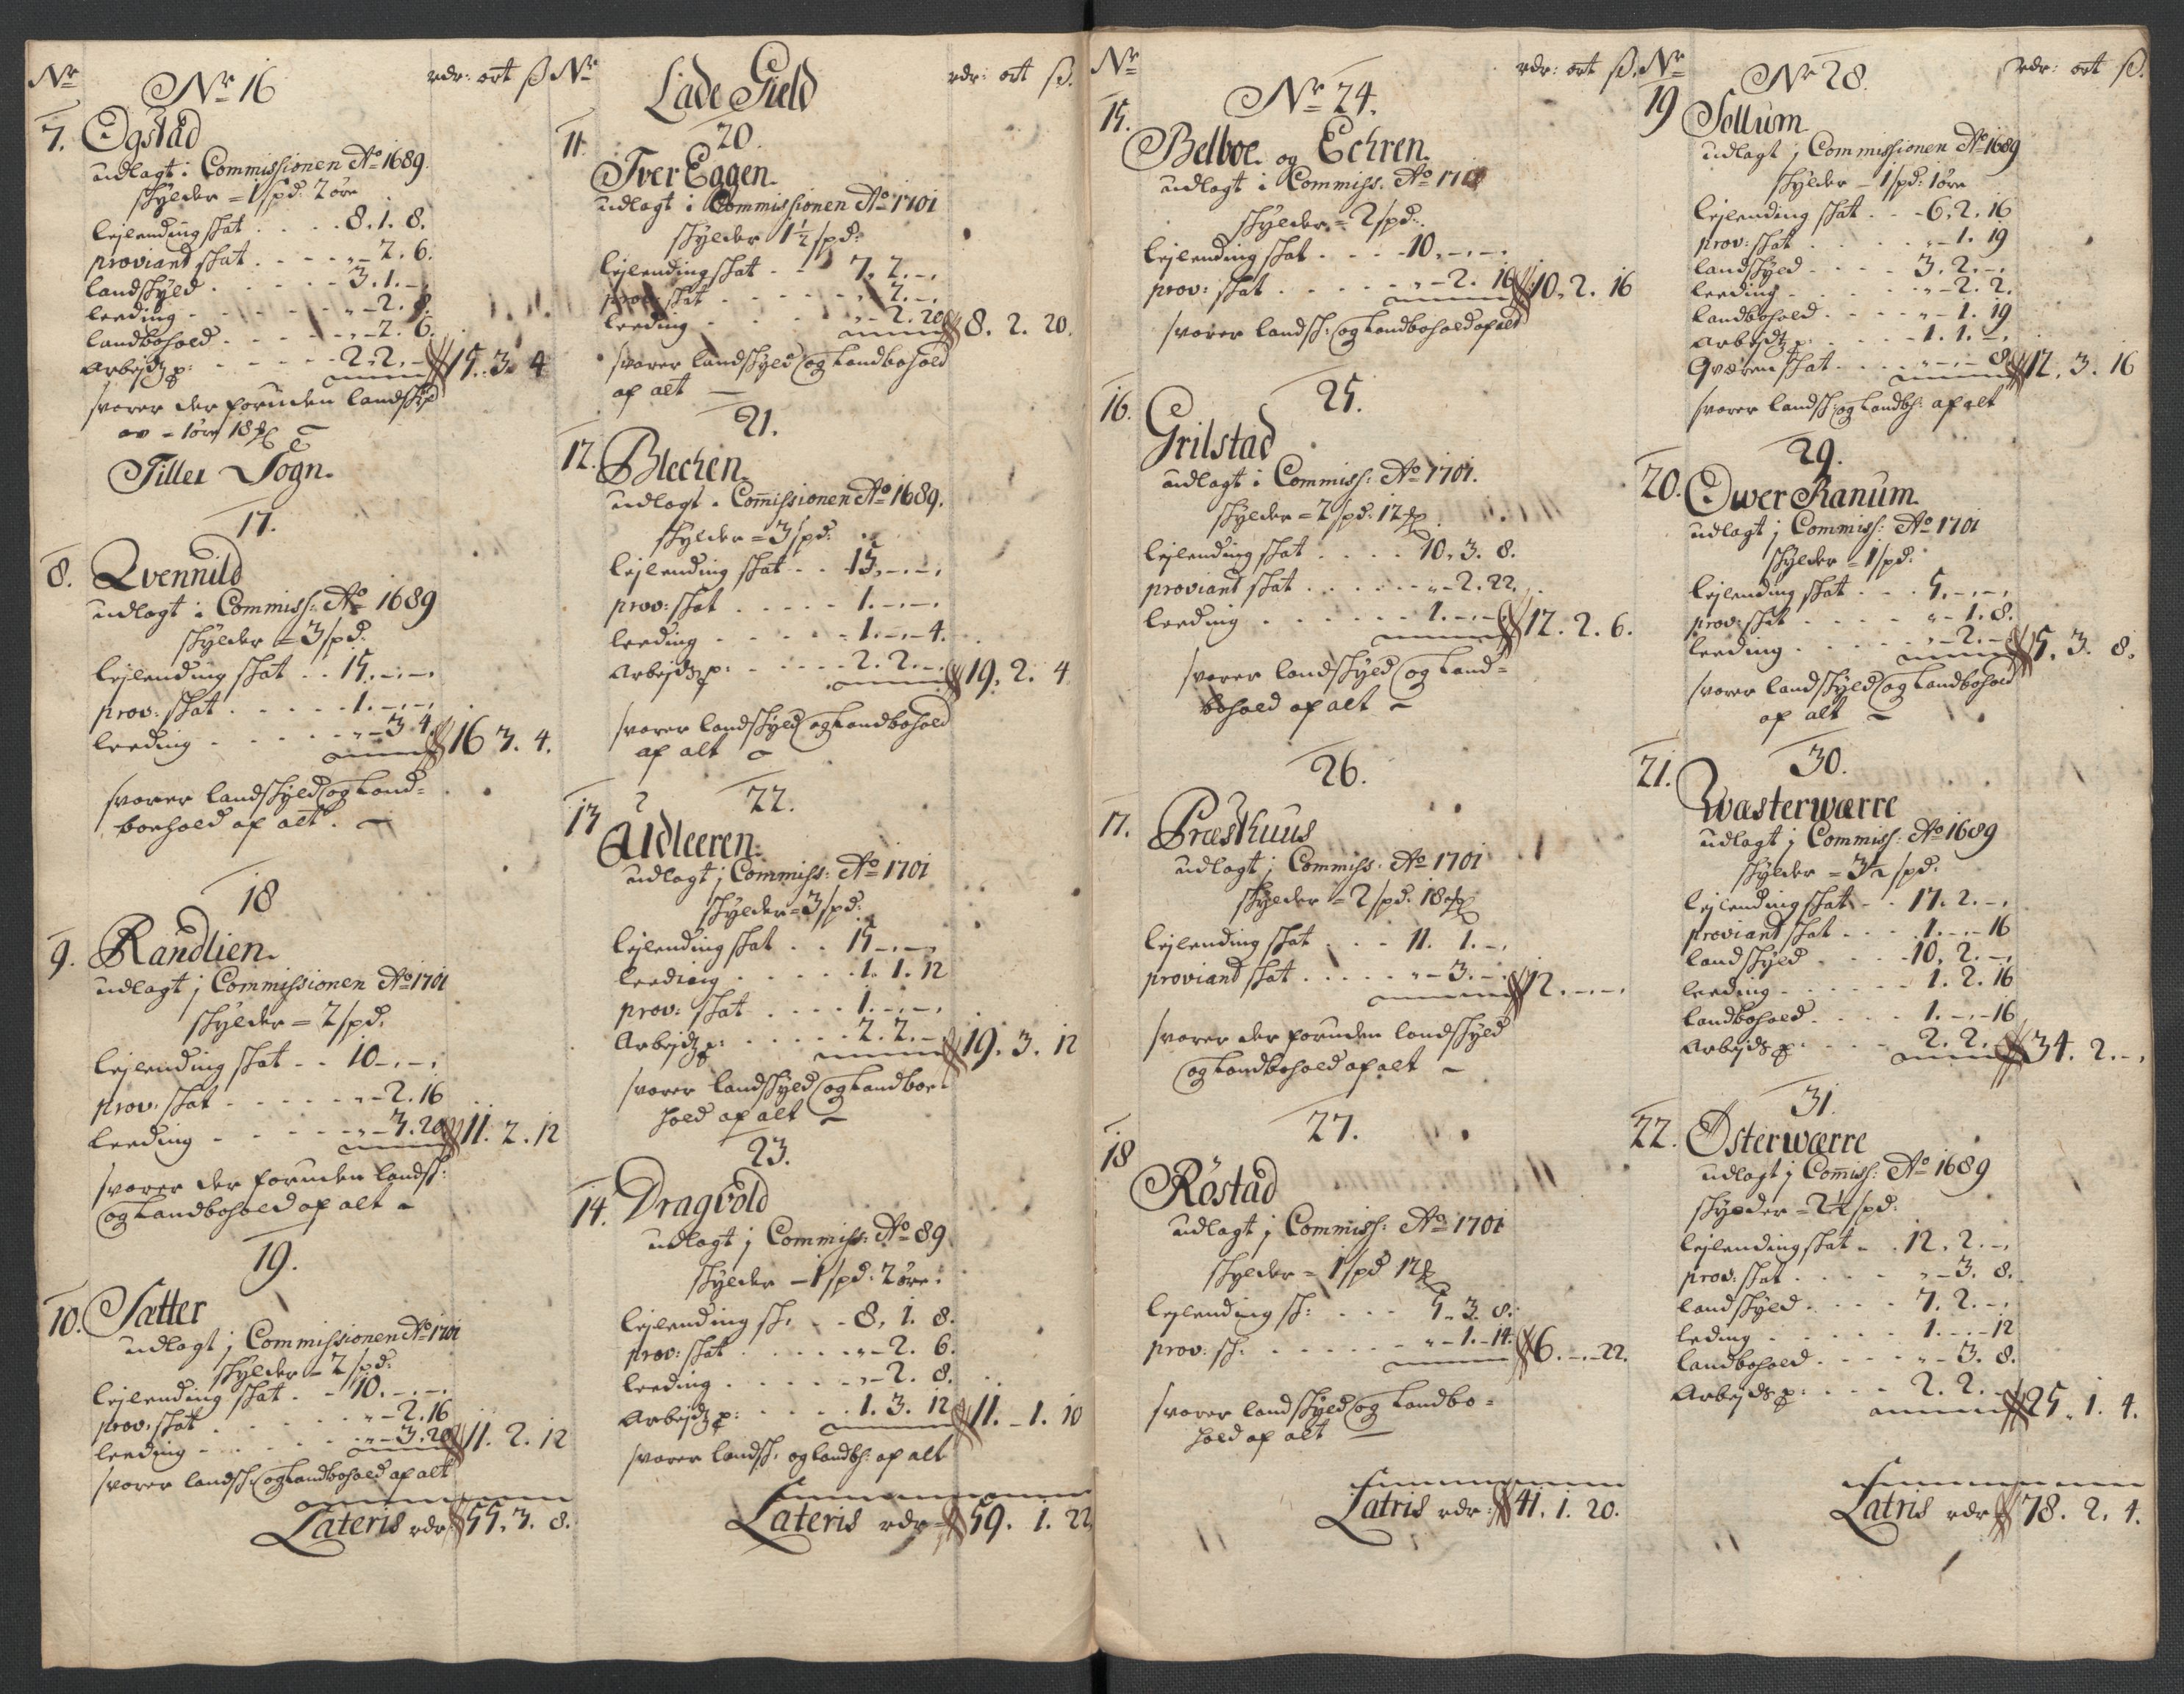 Nr
Nr 16
rdr: ort ß
7. Ogstad
udlagt i Commissionen Ao 1689.
skylder = 1 spd: 2 øre
leilending skat . . . . 8. 1. 8.
proviand skat . . . . „ - 2. 6.
landskyld . . . . . 3. 1. -.
leeding . . . . . „ - 2. 8.
landbohold . . . . „ - 2. 6.
Arbejdz p: . . . . 2. 2. - 15. 3. 4
svarer der foruden landskyld
av = 1 øre 18
Tiller Sogn.
17.
8. Qvennild
udlagt i Commiss: Ao 1689
skylder = 3 spd:
leilending skat . . 15. -. -.
prov: skat . . . . . 1. -. -.
leeding . . . . . „ - 3 4. 16 3. 4.
svarer landskyld og Land=
boehold af alt. -
18
9. Randlien.
udlagt j Commissionen Ao 1701
skylder = 2 spd.
leilending skat . . 10 -. -.
prov: skat . . . . . „ - 2. 16
leeding . . . . . „ - 3. 20 11. 2. 12
svarer der foruden landsk:
og Landbohold af alt -
19.
10. Satter
udlagt j Commissionen Ao 1701
skylder - 2 spd:
leilending skat . . 10. -. -.
prov. skat . . . . „ - 2. 16
leeding . . . . . „ - 3. 20 11. 2. 12
svarer landsk: og Landbohold af alt
Lateris rdr 55. 3. 8.
Nr
Lade Gield
rdr: ort ß.
20.
11. Iver Eggen.
udlagt i Commissionen Ao 1701
skylder 1½ spd:
leilending skat . . 7. 2. -.
prov: skat . . . . . „ 2. -.
leeding . . . . . „ - 2. 20 8. 2. 20.
svarer landskyld og Landbohold
af alt -
21.
12. Blechen.
udlagt i Commissionen Ao 1689.
skylder = 3 spd:
leilending skat . . 15. -. -.
prov: skat . . . . . 1. -. -.
leeding . . . . . 1. -. 4.
Arbejdz p: . . . . 2. 2. -. 19. 2. 4
svarer landskyld og Landbohold
af alt -
22.
13 Udleeren.
udlagt j Commiss: Ao 1701
skylder = 3 spd:
leilending skat . . 15 -. -.
leeding . . . . . 1. 1. 12
prov: skat . . . . 1. -. -.
Arbejdz p: . . . . 2. 2. - 19. 3. 12
svarer landskyld og Landboe-
hold af alt -
23.
14. Dragvold
udlagt j Commiss: Ao 89
skylder - 1 spd: 2 øre.
leilending sk. . . 8. 1. 8.
prov: skat . . . . „ - 2. 6.
leeding . . . . . „ - 2. 8.
Arbejdz p: . . . . 1. 3. 12 11. - 1. 10
svarer landsk. og Landbh: af alt
Lateris rdr 59. 1. 22
Nr
Nr 24.
rdr: ort ß.
15. Belboe og Echren.
udlagt i Commiss. Ao 170
skylder = 2 spd:
leilending skat . . . 10. -. -.
prov: skat . . . . . „ - 2. 16 10. 2. 16
svarer landsk: og Landbohold af alt
25.
16. Grilstad
udlagt i Commiss: Ao 1701.
skylder = 2 spd. 12
leilending skat . . . . 10. 3. 8.
proviant skat . . . . . „ - 2. 22.
leeding . . . . . . 1. -. - 12. 2. 6.
svarer landskyld og Land=
bohold af alt -
26.
17. Præsthuus
udlagt j Commiss. Ao 1701
skylder = 2 spd. 18
leilending skat . . . 11. 1. -.
proviand skat . . . . „ - 3. -. 12. -. -.
svarer der foruden landskyld
og Landbohold af alt -
27.
18 Röstad
udlagt j Commiss: Ao 1701
skylder = 1 spd 12
leilending sk: . . . 5. 3. 8.
prov: sk: . . . . . . „ - 1. - 14. 6. -. - 22.
svarer landskyld og Landbo=
hold af alt -
Latris rdr: 41. 1. 20.
Nr
Nr 28.
rdr: ort ß.
19 Sollum
udlagt j Commissionen Ao 1689
skylder - 1 spd: 1 øre
leilending skat . . 6. 2. 16
prov: skat . . . . . „ - 1. 19
landskyld . . . . 3. 2. -.
leeding . . . . . „ - 2. 2.
Landbohold . . . . „ - 1. 19
Arbejdz p: . . . . 1. 1. -.
Qværn skat . . . . „ -. - 8 12. 3. 16
svarer landsk: og Landbh: af alt
29.
20. Ower Ranum
udlagt j Commiss: Ao 1701
skylder = 1 spd:
leilending skat . . . 5. -. -.
prov: skat . . . . „ - 1. 8.
leeding . . . . . „ - 2. - 5. 3. 8.
svarer landskyld og Landbohold
af alt -
30.
21. Wæsterwærre
udlagt j Commiss: Ao 1689
skylder = 3½ spd:
leilending skat - . 17. 2. -.
proviant skat . . . 1. -. - 16
landskyld . . . . 10. 2. -.
leeding . . . . . 1. 2. 16
Landbohold . . . . 1. -. - 16
Arbejds p: . . . . 2. 2. - 34. 2. -.
31.
22. Østerwærre
udlagt j Comiss: Ao 1689
skylder = 2½ spd:
leilending skat - . 12. 2. -.
prov: skat . . . . „ - 3. 8.
landskyld . . . . 7. 2. -.
leding . . . . . 1. -. - 12
Landbohold . . . . „ - 3. 8.
Arbejds p: . . . . 2. 2. - 25. 1. 4.
Latris rdr 78. 2. 4.